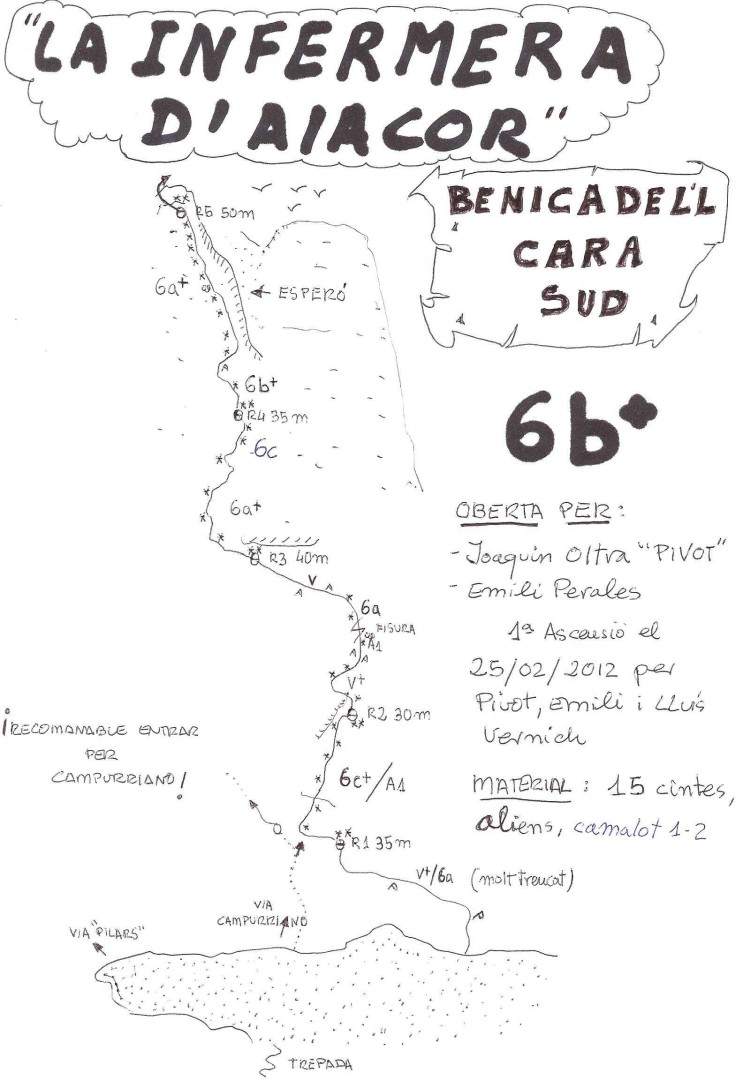 "LA INFERMERA
D'AIACOR"
BENICADELL
CARA
SUD
R5 50m
6a+
ESPERÓ
6b+
R4 35m
6c
6a+
R3 40m
V
6a
FISURA
A1
V+
R2 30m
6c+/A1
R1 35m
V+/6a (molt trencat)
6b+
OBERTA PER:
- Joaquin Oltra "PIVOT"
- Emili Perales
1ª Ascensió el
25/02/2012 per
Pivot, Emili i Lluís
Vernich
MATERIAL: 15 cintes,
aliens, camalot 1-2
¡RECOMANABLE ENTRAR
PER
CAMPURRIANO!
VIA
CAMPURRIANO
VIA "PILARS"
TREPADA